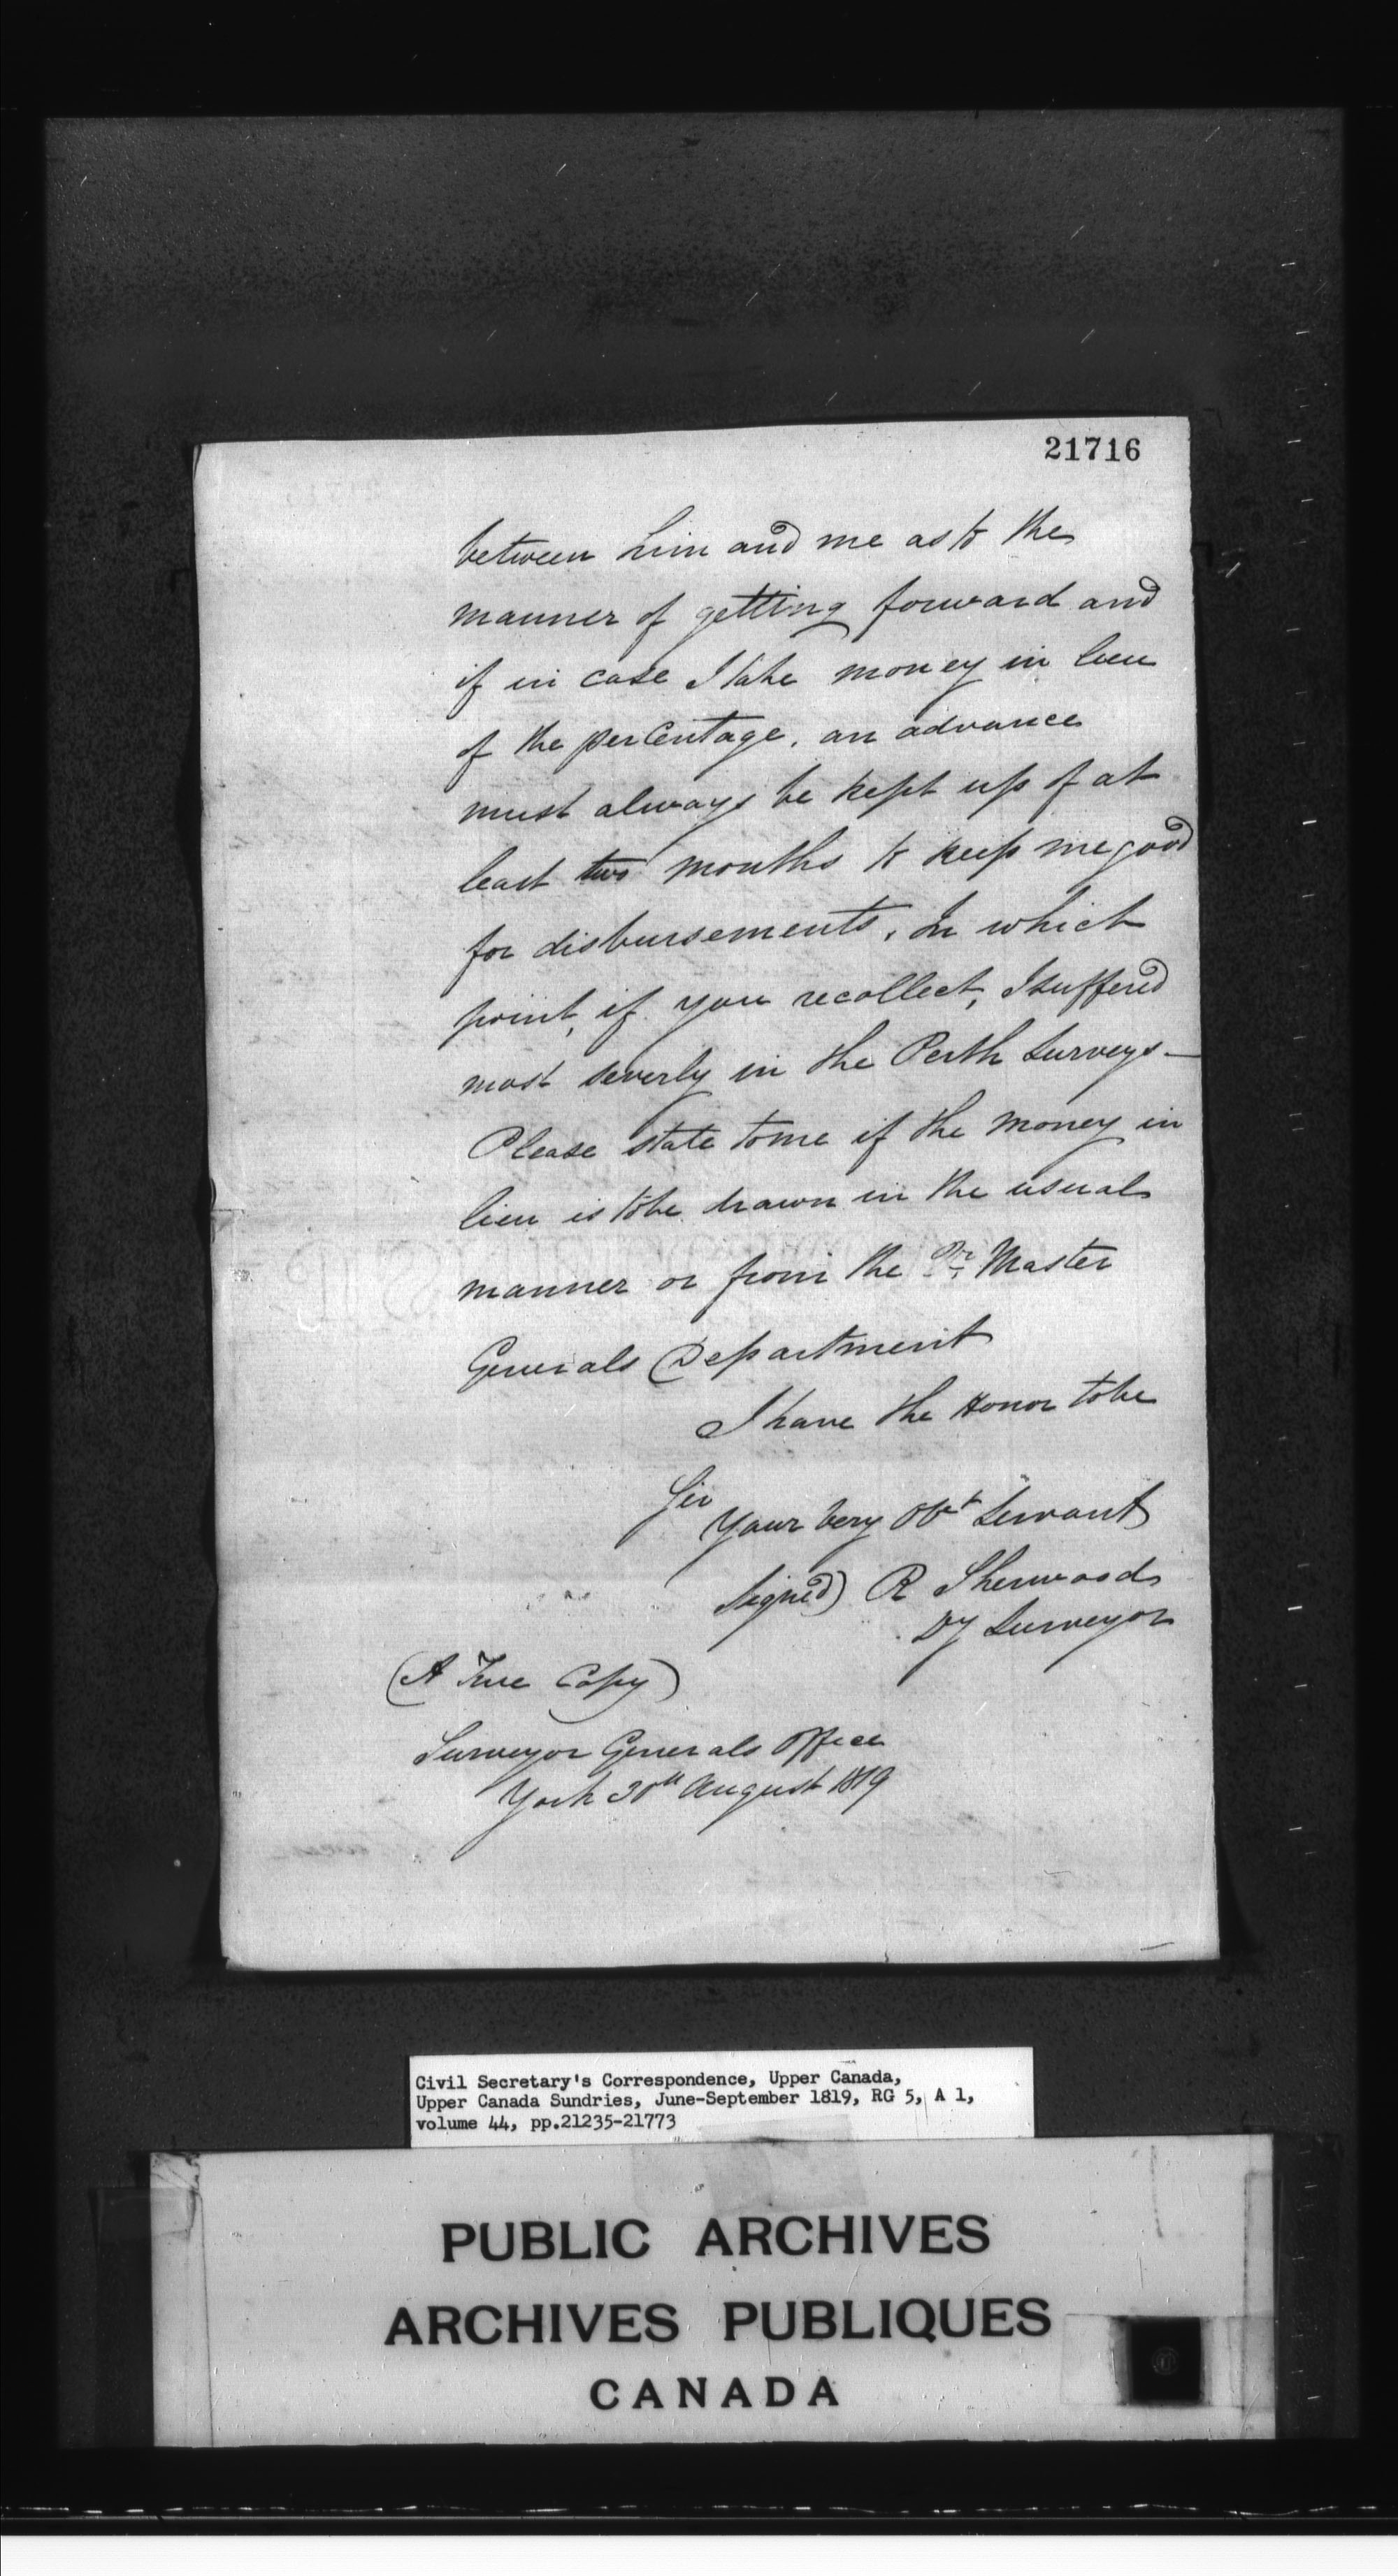 21716
between him and me as to the
manner of getting forward and
if in case I take money in lieu
of the perCentage, an advance
must always be kept up of at
least two months to keep me good
for disbursements, In which
point, if you recollect, I suffered
most severly in the Perth Surveys—
Please state to me if the money in
lieu is to be drawn in the usual
manner or from the Qr Master
Generals Department
I have the Honor to be
Sir
Your very Obt Servant
Signed) R Sherwood
Dy Surveyor
(A True Copy)
Surveyor Generals Office
York 30th August 1819
Civil Secretary's Correspondence, Upper Canada,
Upper Canada Sundries, June-September 1819, RG 5, A 1,
volume 44, pp.21235-21773
PUBLIC ARCHIVES
ARCHIVES PUBLIQUES
CANADA